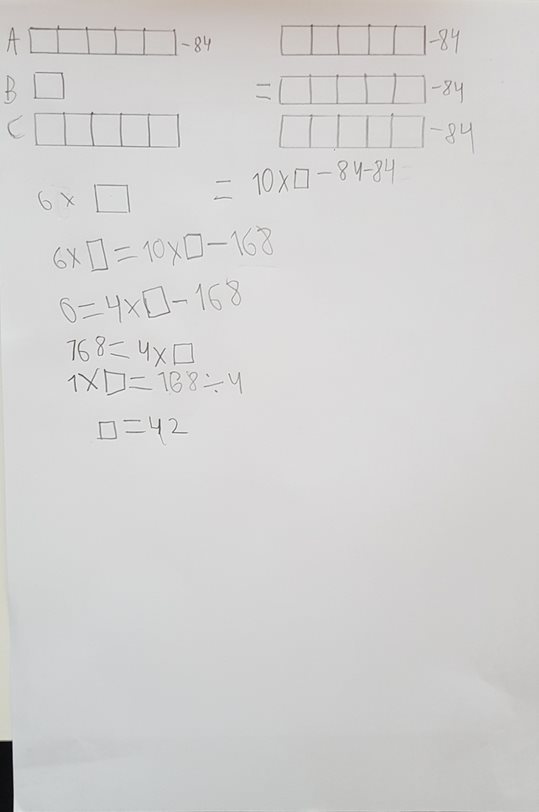 A -84 -84
B = -84
C -84
6 × □ = 10×□-84-84
6×□=10×□-168
0=4×□-168
168=4×□
1×□=168÷4
□=42